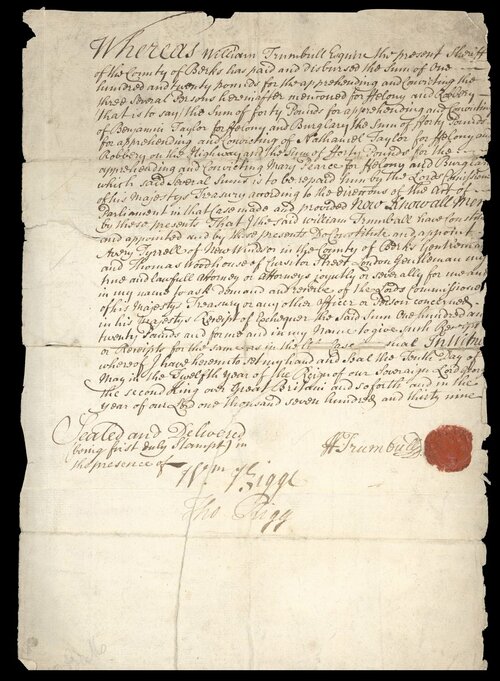 Whereas William Trumbull Esquire the present Sheriff
of the County of Berks has paid and disbursed the Sum of One
hundred and twenty pounds for the apprehending and Convicting the
three Several Persons hereinafter menconed for Felony and Robbery
that is to say the Sum of forty Pounds for apprehending and Convicting
of Benjamin Taylor for Felony and Burglary the Sum of forty Pounds
for apprehending and Convicting of Nathaniel Taylor for Felony and
Robbery on the Highway and the Sum of Forty Pounds for the
apprehending and Convicting Mary Pearce for Felony and Burglary
which said Several Sums is to be repaid him by the Lords Commissioners
of his Majestys Treasury according to the Directions of the Act of
Parliament in that Case made and provided Now Know all Men
by these presents That I the said William Trumball have Constituted
and appointed and by these presents Do Constitute and appoint
Avery Tyrrell of New Windsor in the County of Berks Gentleman
and Thomas Woodhouse of Cursitor Street London Gentleman my
true and lawfull Attorney or Attorneys joyntly or severally for me and
in my name to ask demand and receive of the Lords Commissioners
of his Majestys Treasury or any other Officer or Person concerned
in his Majestys Receipt of Exchequer the said Sum One hundred and
twenty Pounds and for me and in my Name to give such Receipt
or Receipts for the same as in the usual In Witness
whereof I have hereunto set my hand and Seal the Tenth Day of
May in the Twelfth year of the Reign of our Sovereign Lord George
the second King over Great Britain and so forth and in the
year of our Lord one thousand seven hundred and thirty nine
Sealed and Delivered
(being first duly Stampt) in
the presence of
W Trumbull
Wm Bigg
Tho Bigg